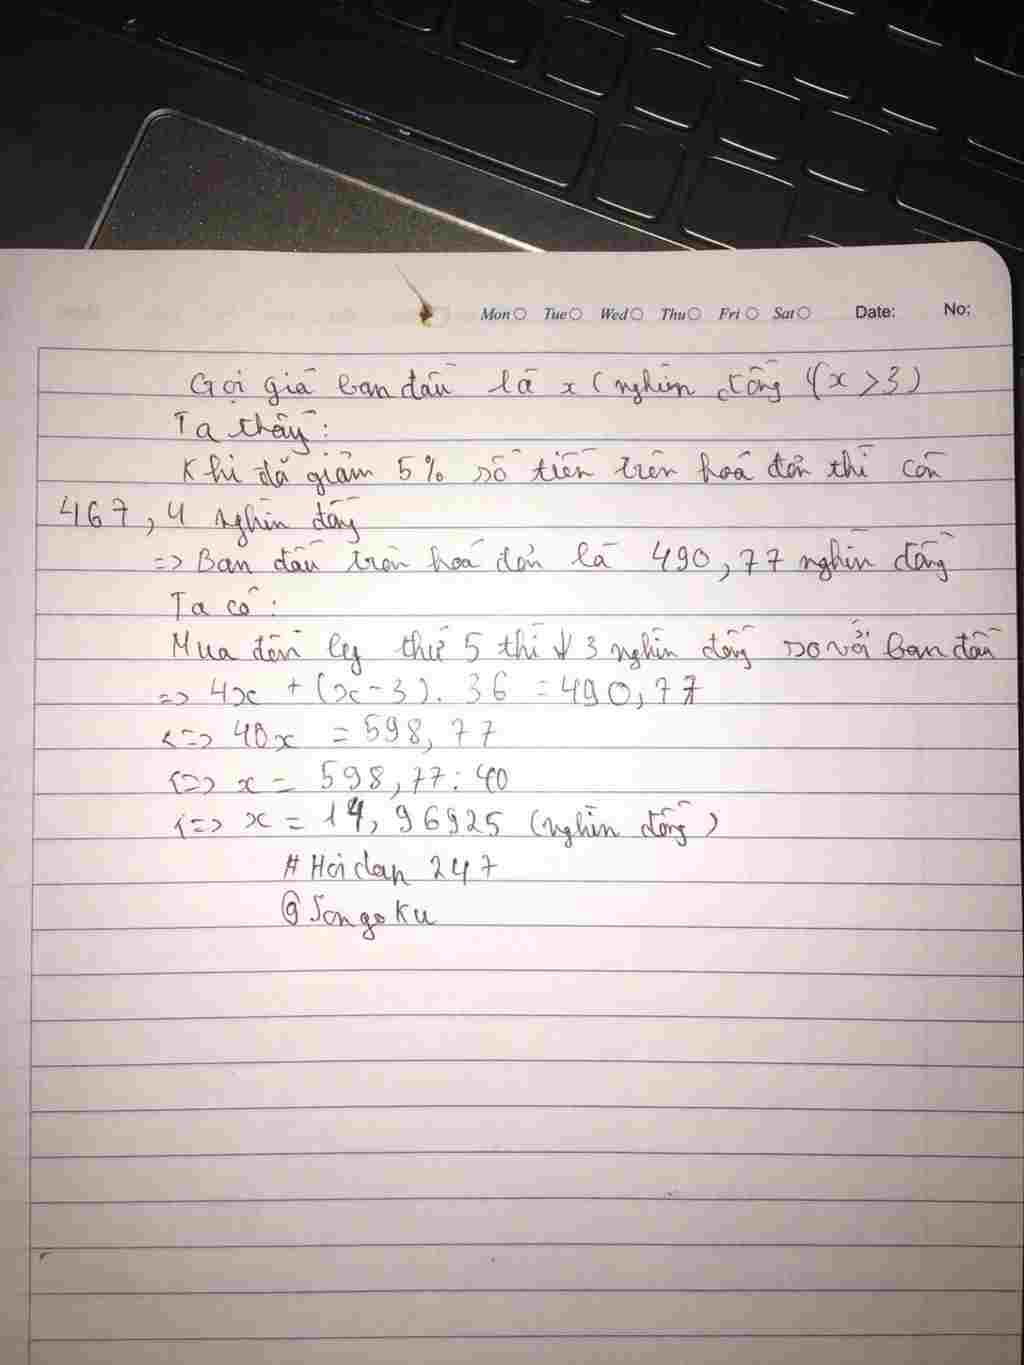 Mon Tue Wed Thu Fri Sat Date: No:
Gọi giá ban đầu là x (nghìn đồng) (x > 3)
Ta thấy:
Khi đã giảm 5% số tiền trên hoá đơn thì còn
467,4 nghìn đồng
=> Ban đầu trên hoá đơn là 490,77 nghìn đồng
Ta có:
Mua đến ly thứ 5 thì ↓ 3 nghìn đồng so với ban đầu
=> 4x + (x - 3). 36 = 490,77
<=> 40x = 598,77
<=> x = 598,77 : 40
<=> x = 14,96925 (nghìn đồng)
# Hoidap 247
@Songoku